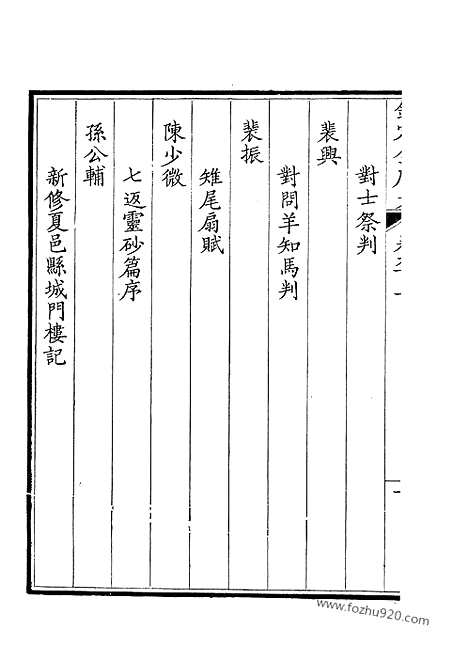 對士祭判
裴興
對問羊知馬判
裴振
雉尾扇賦
陳少微
七返靈砂篇序
孫公輔
新修夏邑縣城門樓記
www.fozhu920.com